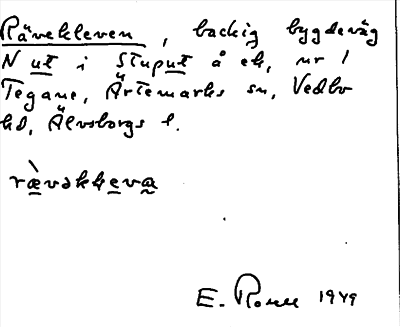 Rävekleven, backig bygdeväg
N ut i Stuput å ek, nr 1
Tegane, Ärtemarks sn, Vedbo
hd, Älvsborgs l.
rævəkkleva
E. 1949